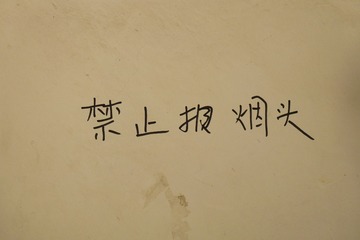 禁止报烟头